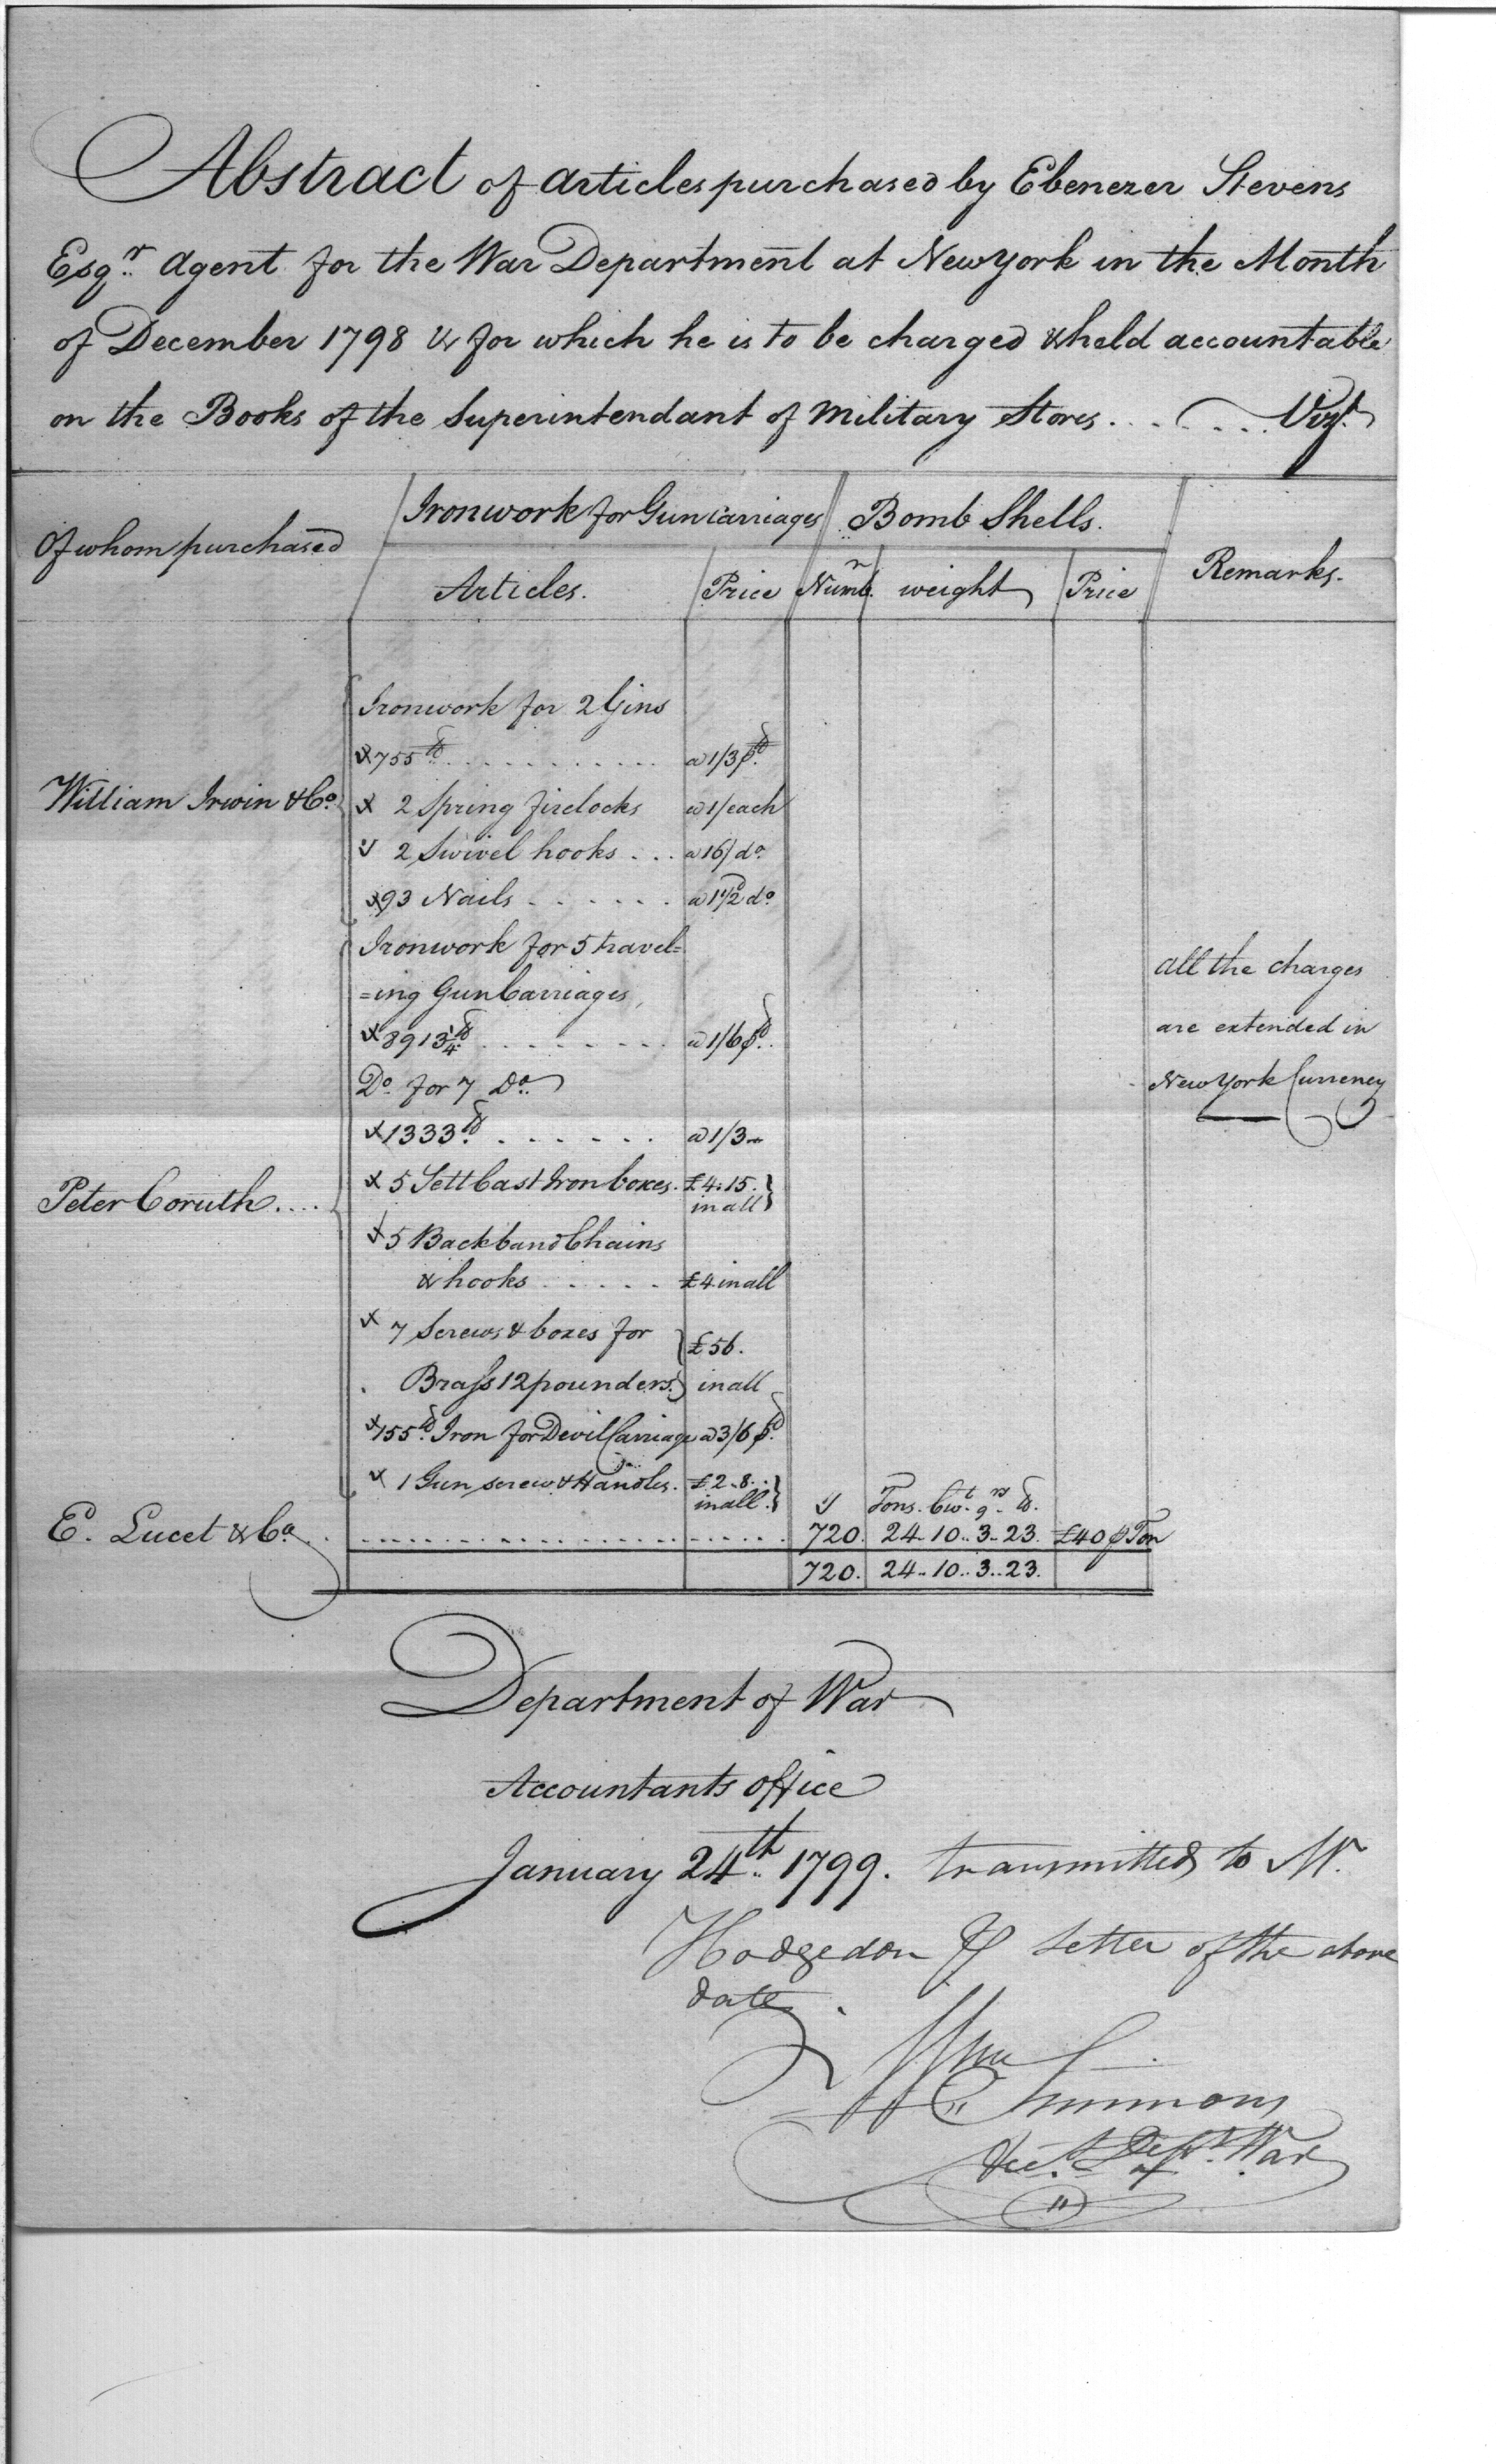 Abstract of articles purchased by Ebenezer Stevens
Esqr. Agent for the War Department at New york in the Month
of December 1798 & for which he is to be charged & held accountable
on the Books of the Superintendant of Military Stores. . . . . . . Vizt.
Of whom purchased
Ironwork for Gun Carriages
Bomb Shells.
Remarks.
Articles.
Price
Numbr.
weight
Price
Ironwork for 2 Gins
755 lb. . . . . . . . . . . . a 1/3 ℔ lb.
William Irwin & Co.
2 Spring firelocks a 1/ each
2 Swivel hooks . . . a 16/ do.
93 Nails . . . . . . a 1 1/2d do.
Ironwork for 5 travel=
=ing Gun Carriages,
8913/4 lb. . . . . . . . . a 1/6 ℔ lb.
Do. for 7 Do.
1333 lb. . . . . . . a 1/3
5 Sett Cast Iron boxes. £4.15. in all
Peter Coruth. . . .
5 Backband Chains
& hooks . . . . . £4 in all
7 Screws & boxes for
Brass 12 pounders. £56. in all
155 lb. Iron for Devil Carriage a 3/6 ℔ lb.
1 Gun screw & Handles. £2.8. in all.
Tons. Cwt. qrs. lb.
E. Lucet & Co. . . 720. 24..10..3..23. £40 ℔ Ton
720. 24..10..3..23.
all the charges
are extended in
New York Currency
Department of War
Accountants office
January 24th. 1799. transmitted to Mr.
Hodgedon ℔ letter of the above
date.
Wm Simmons
Acct. Dept. of War